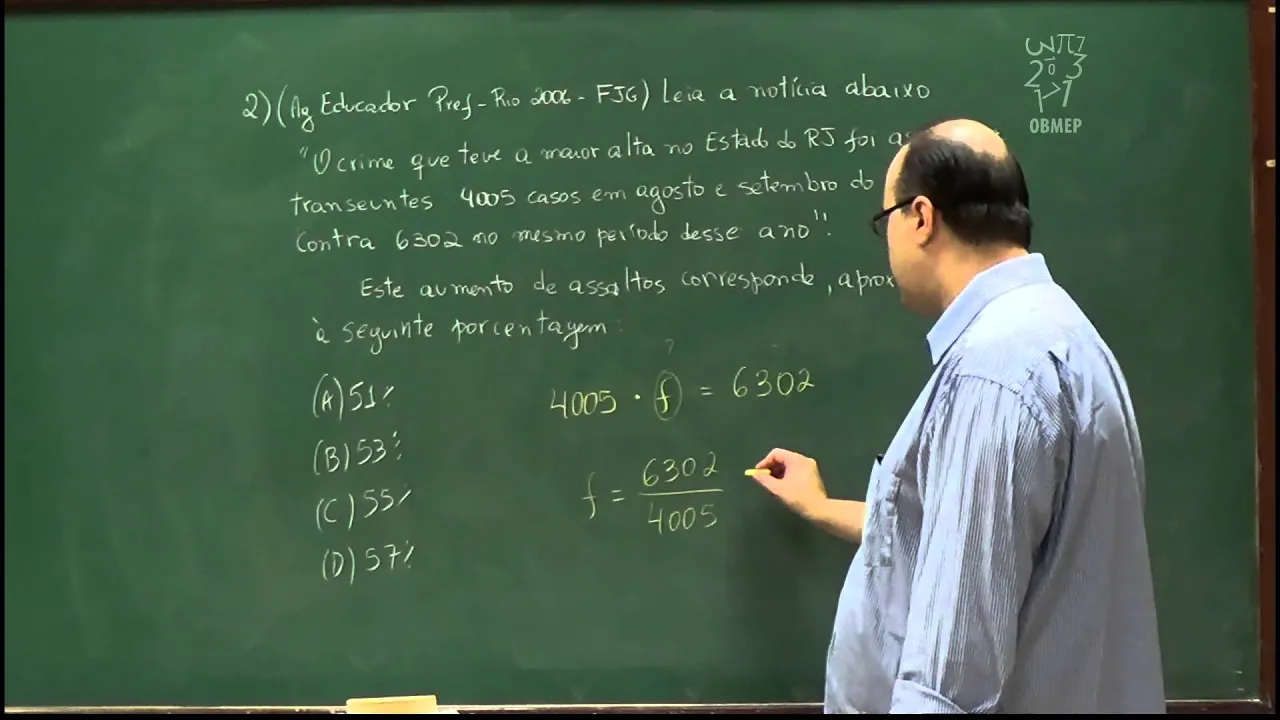 2) (Ag Educador Pref-Rio 2006 - FJG) Leia a notícia abaixo
"O crime que teve a maior alta no Estado do RJ foi
transeuntes 4005 casos em agosto e setembro do
contra 6302 no mesmo período desse ano".
Este aumento de assaltos corresponde,
à seguinte porcentagem:
(A) 51%
(B) 53%
(C) 55%
(D) 57%
4005 · f = 6302
f = 6302
4005
3π7
2 0 3
1>1
OBMEP